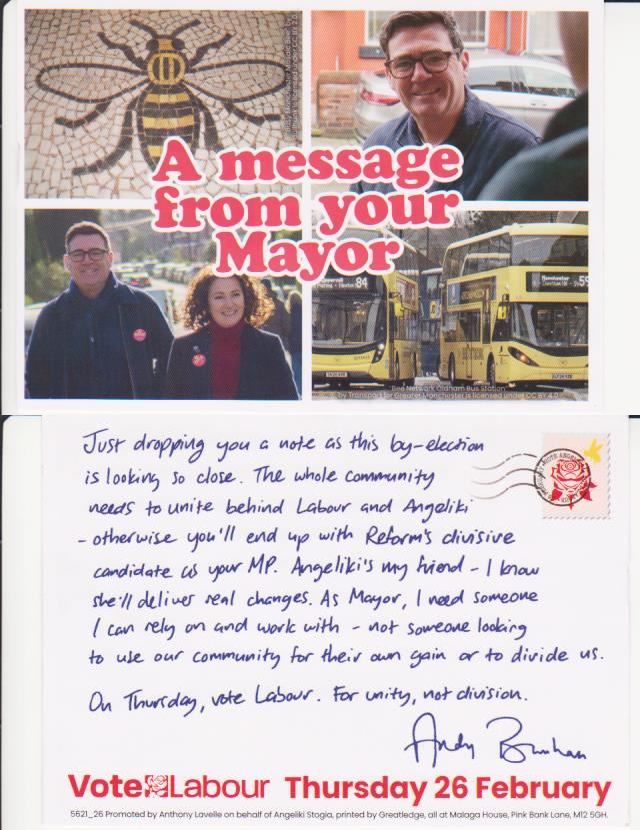 A message
from your
Mayor
84
Manchester
59
Bee Network Oldham Bus Station
by Transport for Greater Manchester is licensed under CC BY 4.0
Just dropping you a note as this by-election
is looking so close. The whole community
needs to unite behind Labour and Angeliki
- otherwise you'll end up with Reform's divisive
candidate as your MP. Angeliki's my friend - I know
she'll deliver real changes. As Mayor, I need someone
I can rely on and work with - not someone looking
to use our community for their own gain or to divide us.
On Thursday, vote Labour. For unity, not division.
Andy Burnham
Vote Labour Thursday 26 February
5621_26 Promoted by Anthony Lavelle on behalf of Angeliki Stogia, printed by Greatledge, all at Malaga House, Pink Bank Lane, M12 5GH.